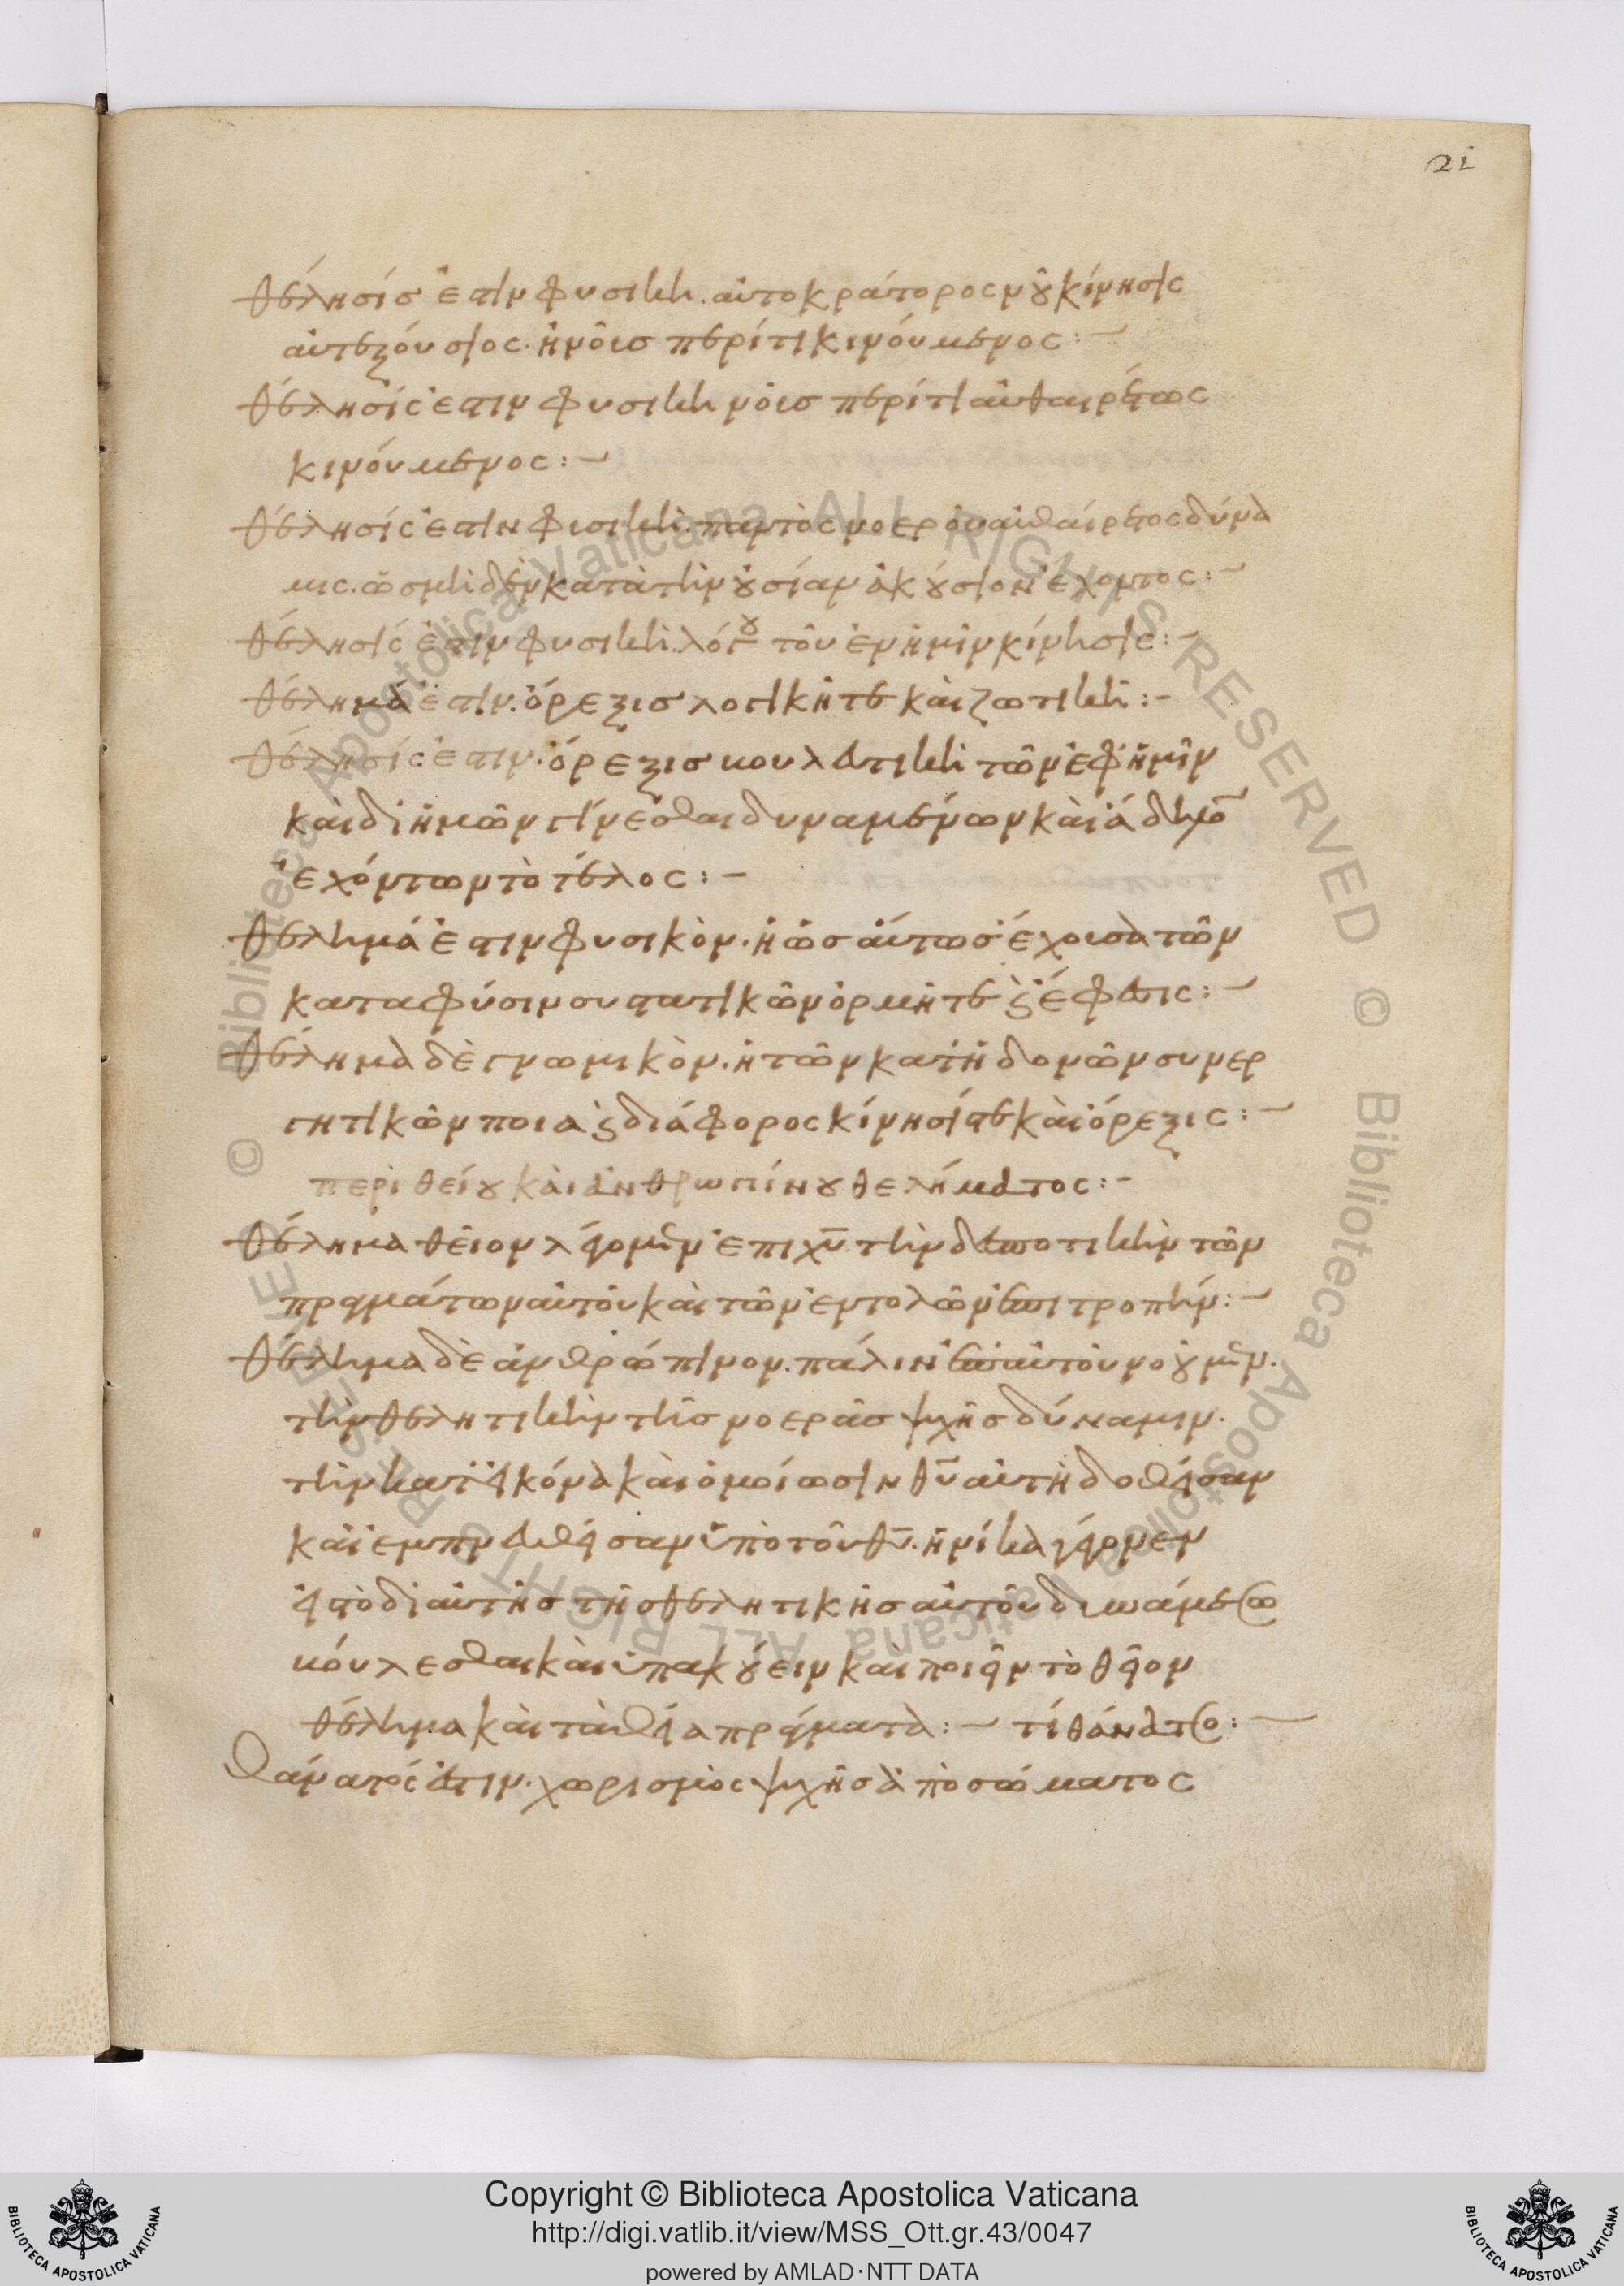 21
θέλησίς ἐστιν φυσική. αὐτοκράτορος νοῦ κίνησις
αὐτεξούσιος. ἢ νοῦς περί τι κινούμενος:~
θέλησίς ἐστιν φυσικὴ νοῦς περί τι αὐθαιρέτως
κινούμενος:~
θέλησίς ἐστιν φυσικὴ. παντὸς νοεροῦ αὐθαίρετος δύνα
μις. ὡς μηδὲν κατὰ τὴν οὐσίαν ἀκούσιον ἔχοντος:~
θέλησίς ἐστιν φυσικὴ. λόγου τοῦ ἐν ἡμῖν κίνησις:~
θέλημά ἐστιν. ὄρεξις λογική τε καὶ ζωτικὴ:~
θέλησίς ἐστιν. ὄρεξις βουλευτικὴ τῶν ἐφ' ἡμῖν
καὶ δι' ἡμῶν γίνεσθαι δυναμένων καὶ ἄδηλον
ἐχόντων τὸ τέλος:~
θέλημά ἐστιν φυσικὸν. ἡ ὡσαύτως ἔχουσα τῶν
κατα φύσιν συστατικῶν ὁρμή τε καὶ ἔφεσις:~
θέλημα δὲ γνωμικὸν. ἡ τῶν καθ' ἡδονῶν συνερ
γητικῶν ποιὰ καὶ διάφορος κίνησίς τε καὶ ὄρεξις:~
περὶ θείου καὶ ἀνθρωπίνου θελήματος:~
θέλημα θεῖον λέγομεν ἐπὶ χυ τὴν δεσποτικὴν τῶν
πραγμάτων αὐτοῦ καὶ τῶν ἐντολῶν ἐπιτροπήν:~
θέλημα δὲ ἀνθρώπινον. πάλιν ἐπ' αὐτοῦ νοοῦμεν.
τὴν θελητικὴν τῆς νοερᾶς ψυχῆς δύναμιν.
τὴν κατ' εἰκόνα καὶ ὁμοίωσιν θυ αὐτῇ δοθεῖσαν
καὶ ἐμπνευθεῖσαν ὑπὸ τοῦ θυ. ἡνίκα γέγονεν
εἰς τὸ δι' αὐτῆς τῆς θελητικῆς αὐτοῦ δυνάμεως
βούλεσθαι καὶ ὑπακούειν καὶ ποιεῖν τὸ θεῖον
θέλημα καὶ τὰ θεῖα πράγματα:~ τί θάνατος:~
Θάνατός ἐστιν. χωρισμὸς ψυχῆς ἀπὸ σώματος
Copyright © Biblioteca Apostolica Vaticana
http://digi.vatlib.it/view/MSS_Ott.gr.43/0047
powered by AMLAD·NTT DATA